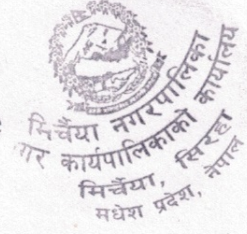 मिर्चैया नगरपालिका
गर कार्यपालिकाको कार्यालय
मिर्चैया, सिरहा
मधेश प्रदेश, नेपाल